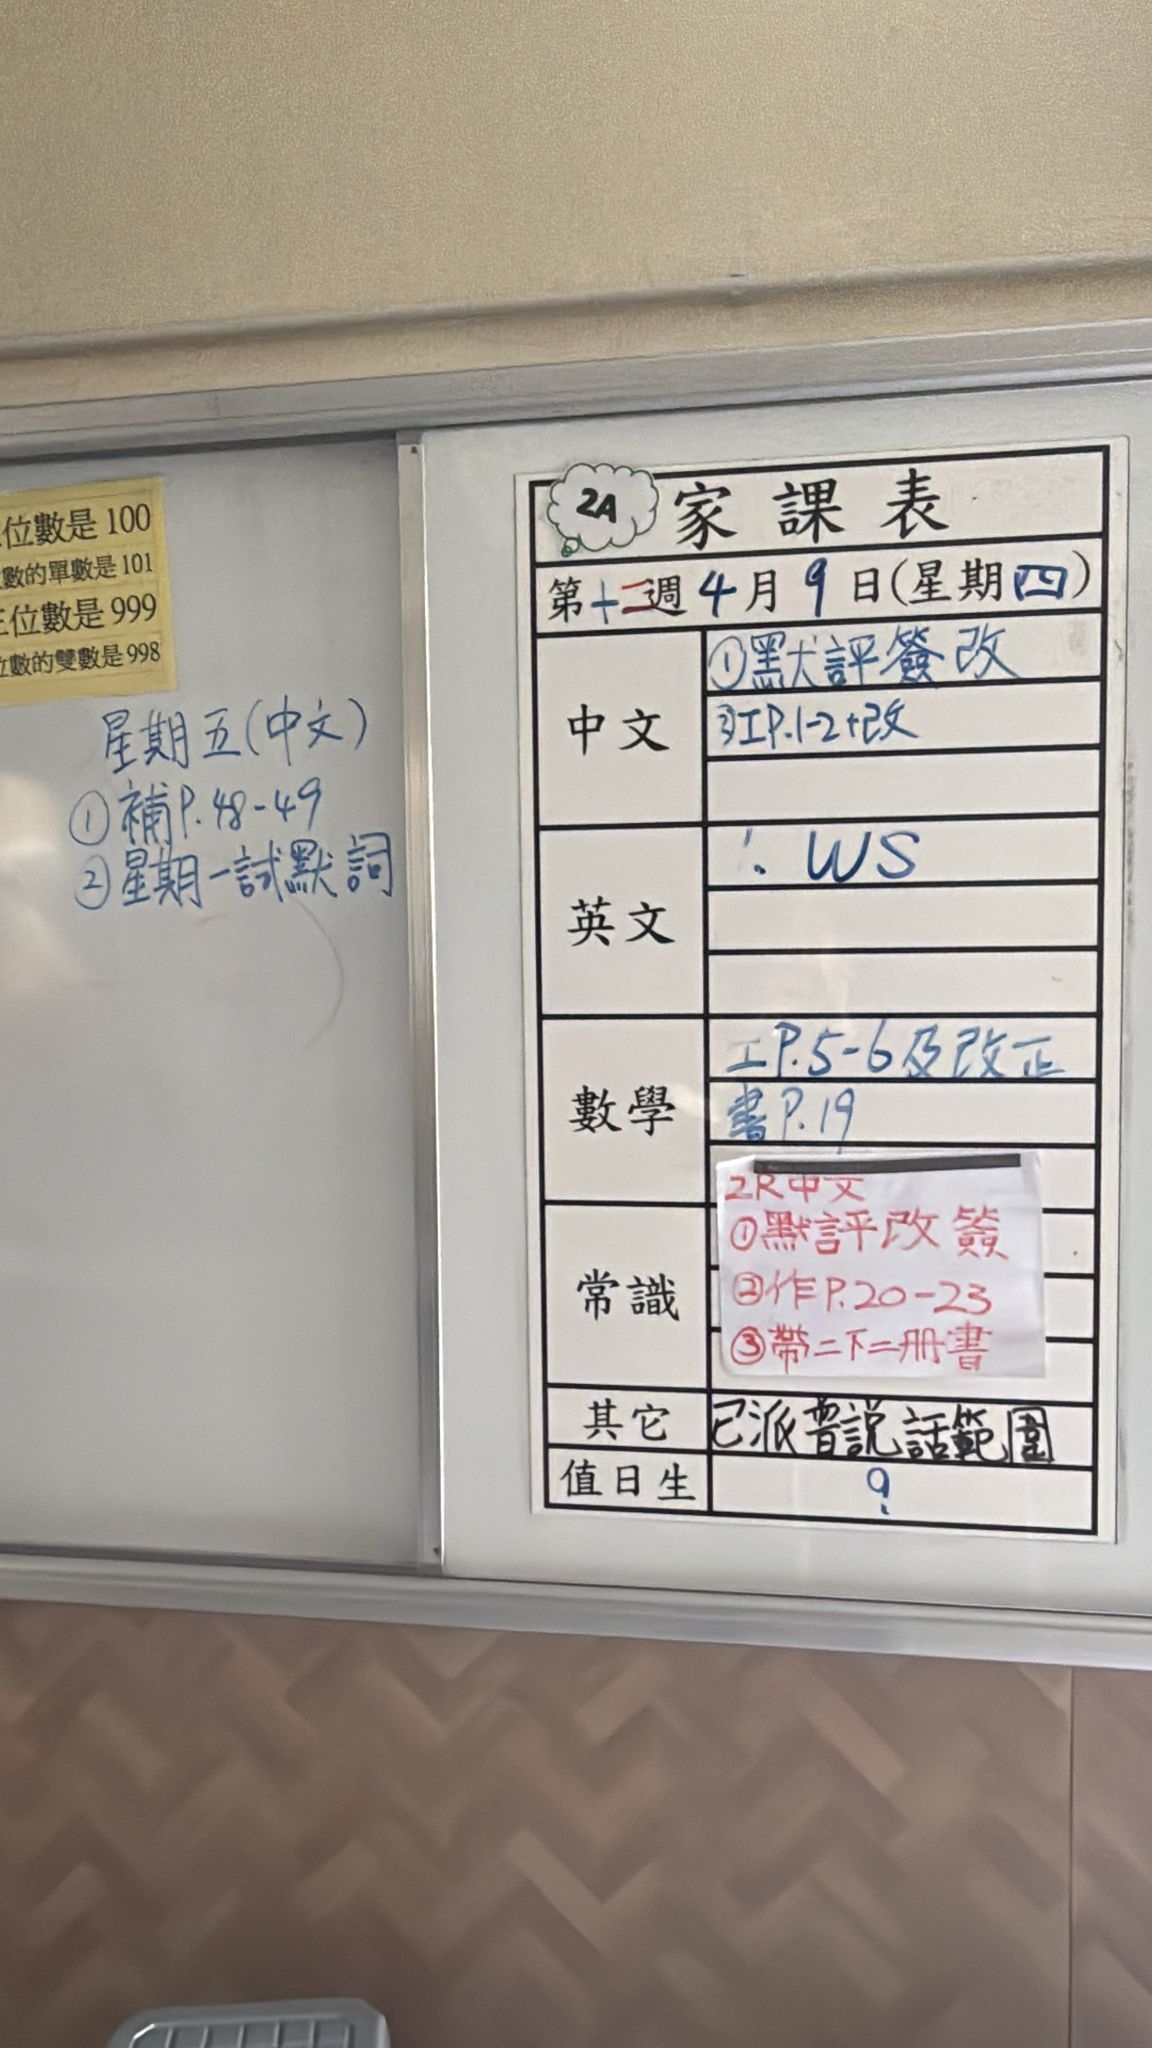 位數是 100
數的單數是 101
三位數是 999
位數的雙數是 998
星期五(中文)
①補P.48-49
②星期一試默詞
2A 家課表
第十二週4月9日(星期四)
中文
①默評簽改
工P.1-2+改
英文
WS
數學
工P.5-6及改正
書P.19
2R中文
①默評改簽
②作P.20-23
③帶二下二冊書
常識
其它 已派普説話範圍
值日生 9